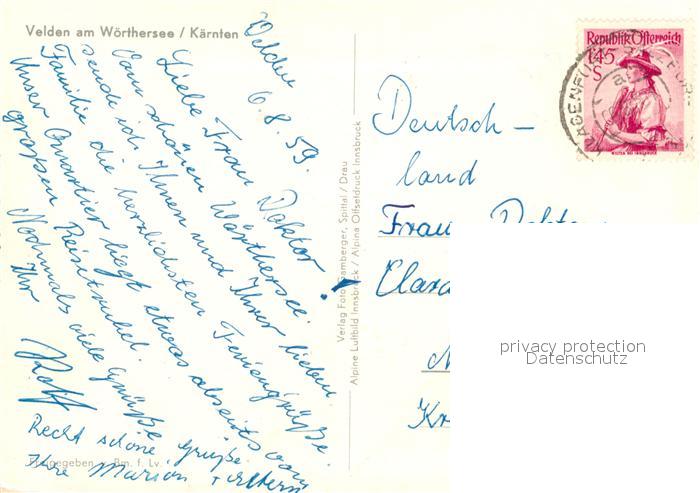 Velden am Wörthersee / Kärnten
Velden
6.8.59.
Liebe Frau Doktor!
Vom schönen Wörthersee
sende ich Ihnen und Ihrer lieben
Familie die herzlichsten Feriengrüße.
Unser Quartier liegt etwas abseits vom
großen Reisetrubel.
Nochmals viele Grüße
Ihr
Rolf
Recht schöne Grüße
Ihre Marion + Eltern
Freigegeben Bm. f. Lv.
Verlag Foto Gamberger, Spittal / Drau
Alpine Luftbild Innsbruck / Alpina Offsetdruck Innsbruck
Republik Österreich
1.45
S
WILTEN BEI INNSBRUCK
Deutsch-
land
Frau Doktor
Clara
Kr
privacy protection
Datenschutz